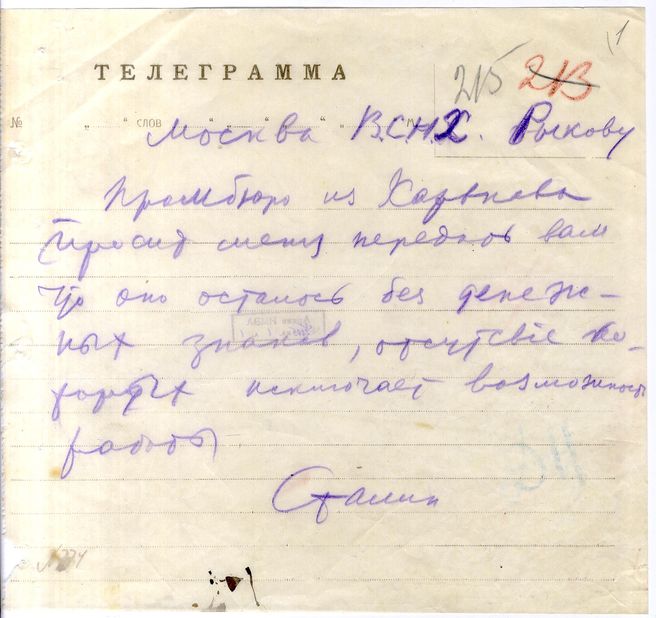 11
215 213
ТЕЛЕГРАММА
№ „ “ слов „ “ „ “ „ м.
Москва В.С.Н.Х. Рыкову
Промбюро из Харькова
просит меня передать вам
что оно осталось без денеж-
ных знаков, отсутствіе ко-
торых исключает возможность
работы
Сталин